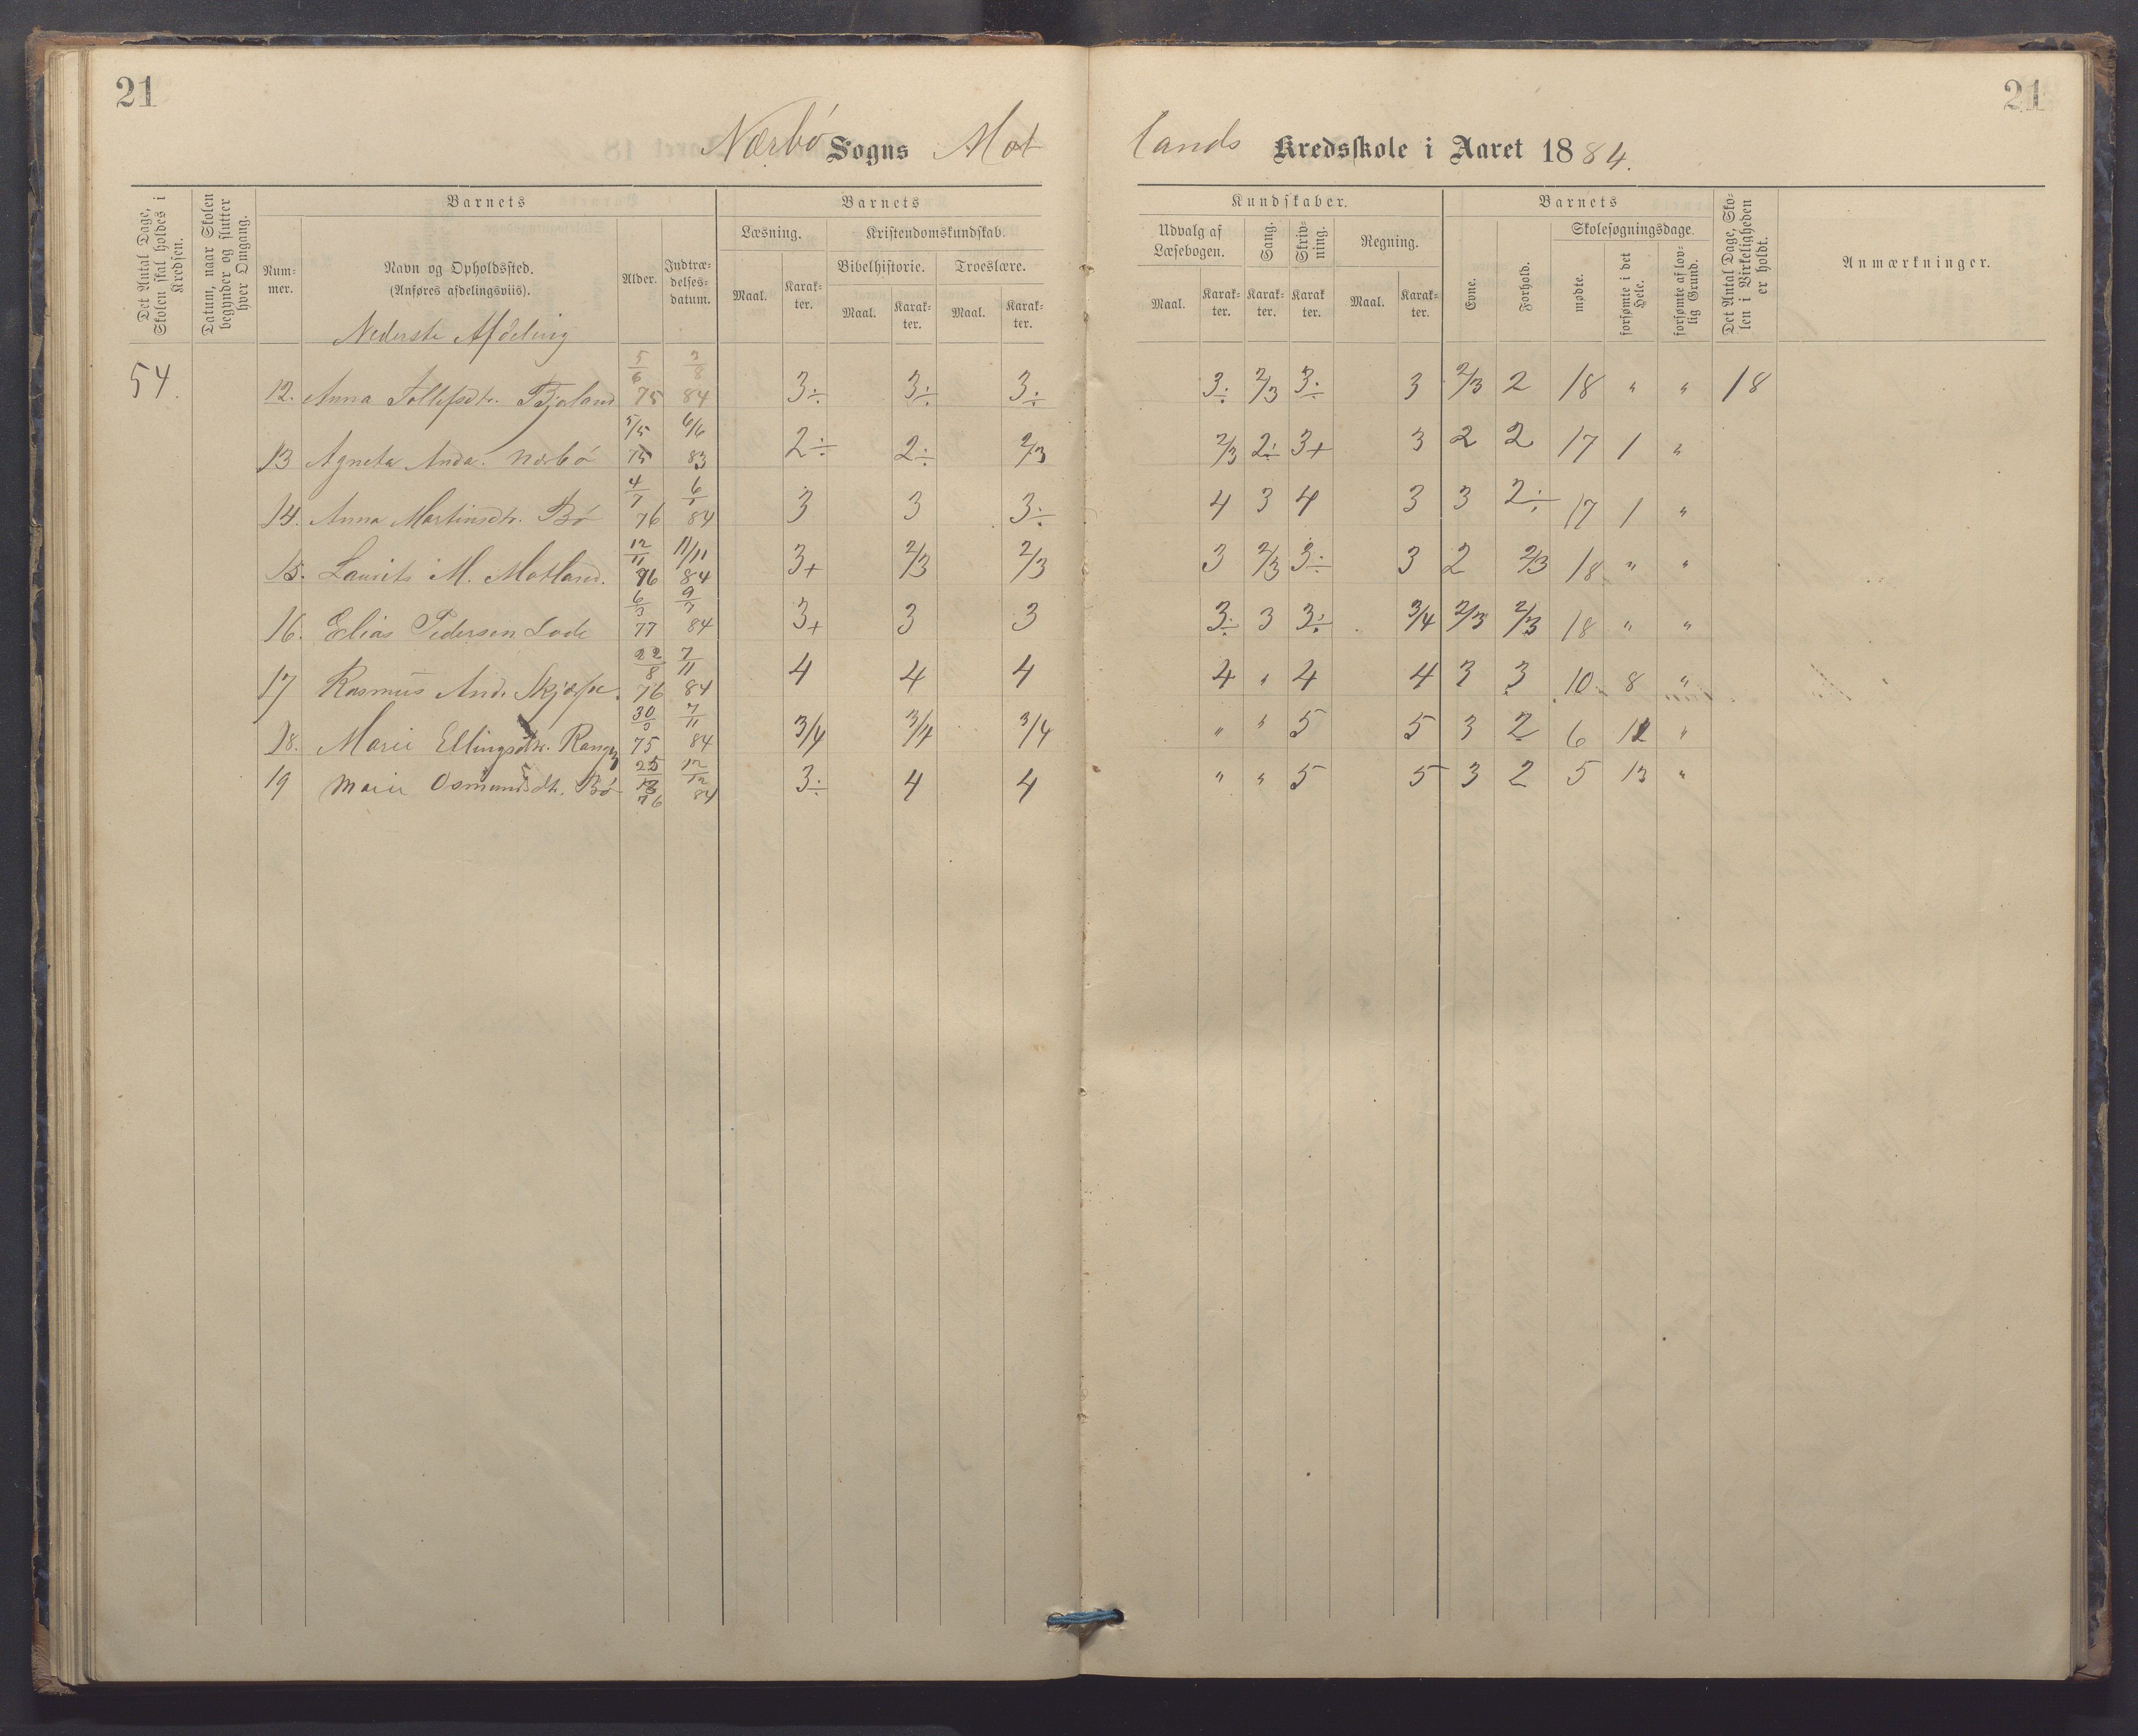 21
21
Nærbö Sogns Mot
lands Kredsskole i Aaret 1884.
Det Antal Dage, Skolen skal holdes i Kredsen.
Datum, naar Skolen begynder og slutter hver Omgang.
Barnets
Num-
mer.
Navn og Opholdssted.
(Anføres afdelingsviis).
Alder.
Indtræ-
delses-
datum.
Barnets
Læsning.
Maal.
Karak-
ter.
Kristendomskundskab.
Bibelhistorie.
Maal.
Karak-
ter.
Troeslære.
Maal.
Karak-
ter.
Kundskaber.
Udvalg af
Læsebogen.
Maal.
Karak-
ter.
Sang.
Karak-
ter.
Skriv-
ning.
Karak
ter.
Regning.
Maal.
Karak-
ter.
Barnets
Evne.
Forhold.
Skolesøgningsdage.
mødte.
forsømte i det Hele.
forsømte af lov-
lig Grund.
Det Antal Dage, Sko-
len i Virkeligheden
er holdt.
Anmærkninger.
Nederste Afdeling
54. 12. Anna Tollefsdtr. Bjoland 5/6 75 84 3÷ 3÷ 3÷ 3÷ 2/3 3÷ 3 2/3 2 18 " " 18
13 Agneta Anda. Nærbö 5/5 75 6/6 83 2÷ 2÷ 2/3 2/3 2÷ 3+ 3 2 2 17 1 "
14. Anna Martinsdtr. Bö 76 84 3 3 3÷ 4 3 4 3 3 2÷ 17 1 "
15. Laurits M. Motland. 12/11 76 11/11 84 3+ 2/3 2/3 3 2/3 3÷ 3 2 2/3 18 " "
16. Elias Pedersen Lode 77 84 3+ 3 3 3÷ 3 3÷ 3/4 2/3 2/3 18 " "
17 Rasmus And. 22/8 76 7/11 84 4 4 4 4 " 4 4 3 3 10 8 "
18. Marie Ellingsdtr. 75 7/11 84 3/4 3/4 3/4 " " 5 5 3 2 6 12 "
19 Marie Osmundsdtr. Bö 76 12/12 84 3÷ 4 4 " " 5 5 3 2 5 13 "